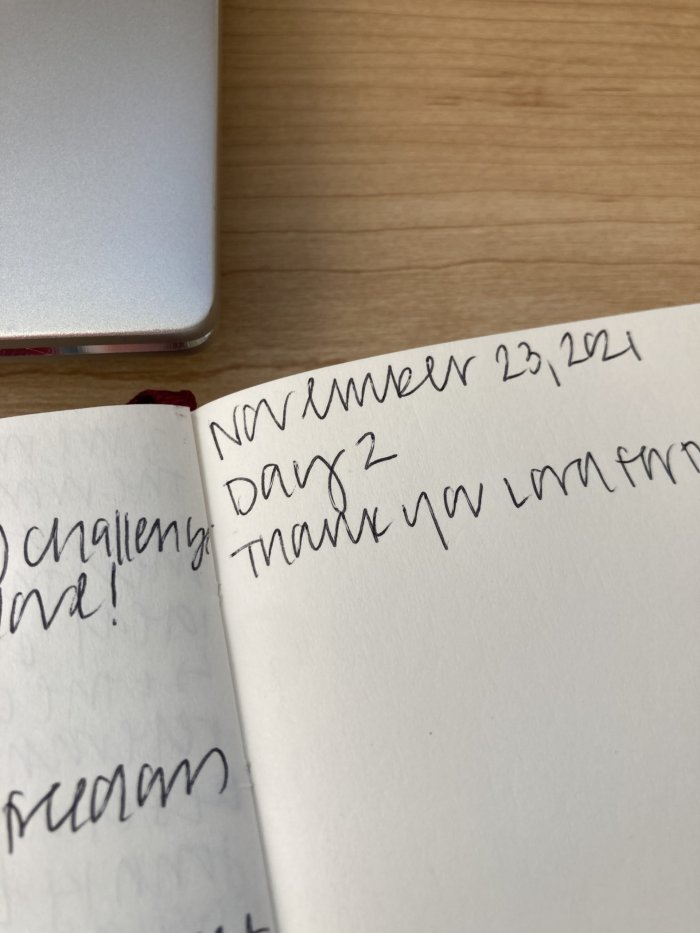 ) challenge
love!
freedom
November 23, 2021
Day 2
Thank you Lord for